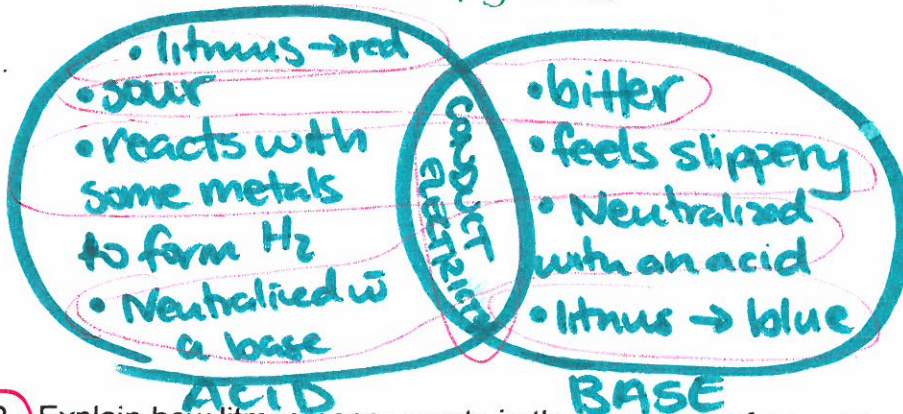 • litmus → red
• sour
• reacts with
some metals
to form H₂
• Neutralized w̄
a base
ACID
CONDUCT
ELECTRICITY
• bitter
• feels slippery
• Neutralized
with an acid
• litmus → blue
BASE
Explain how litmus